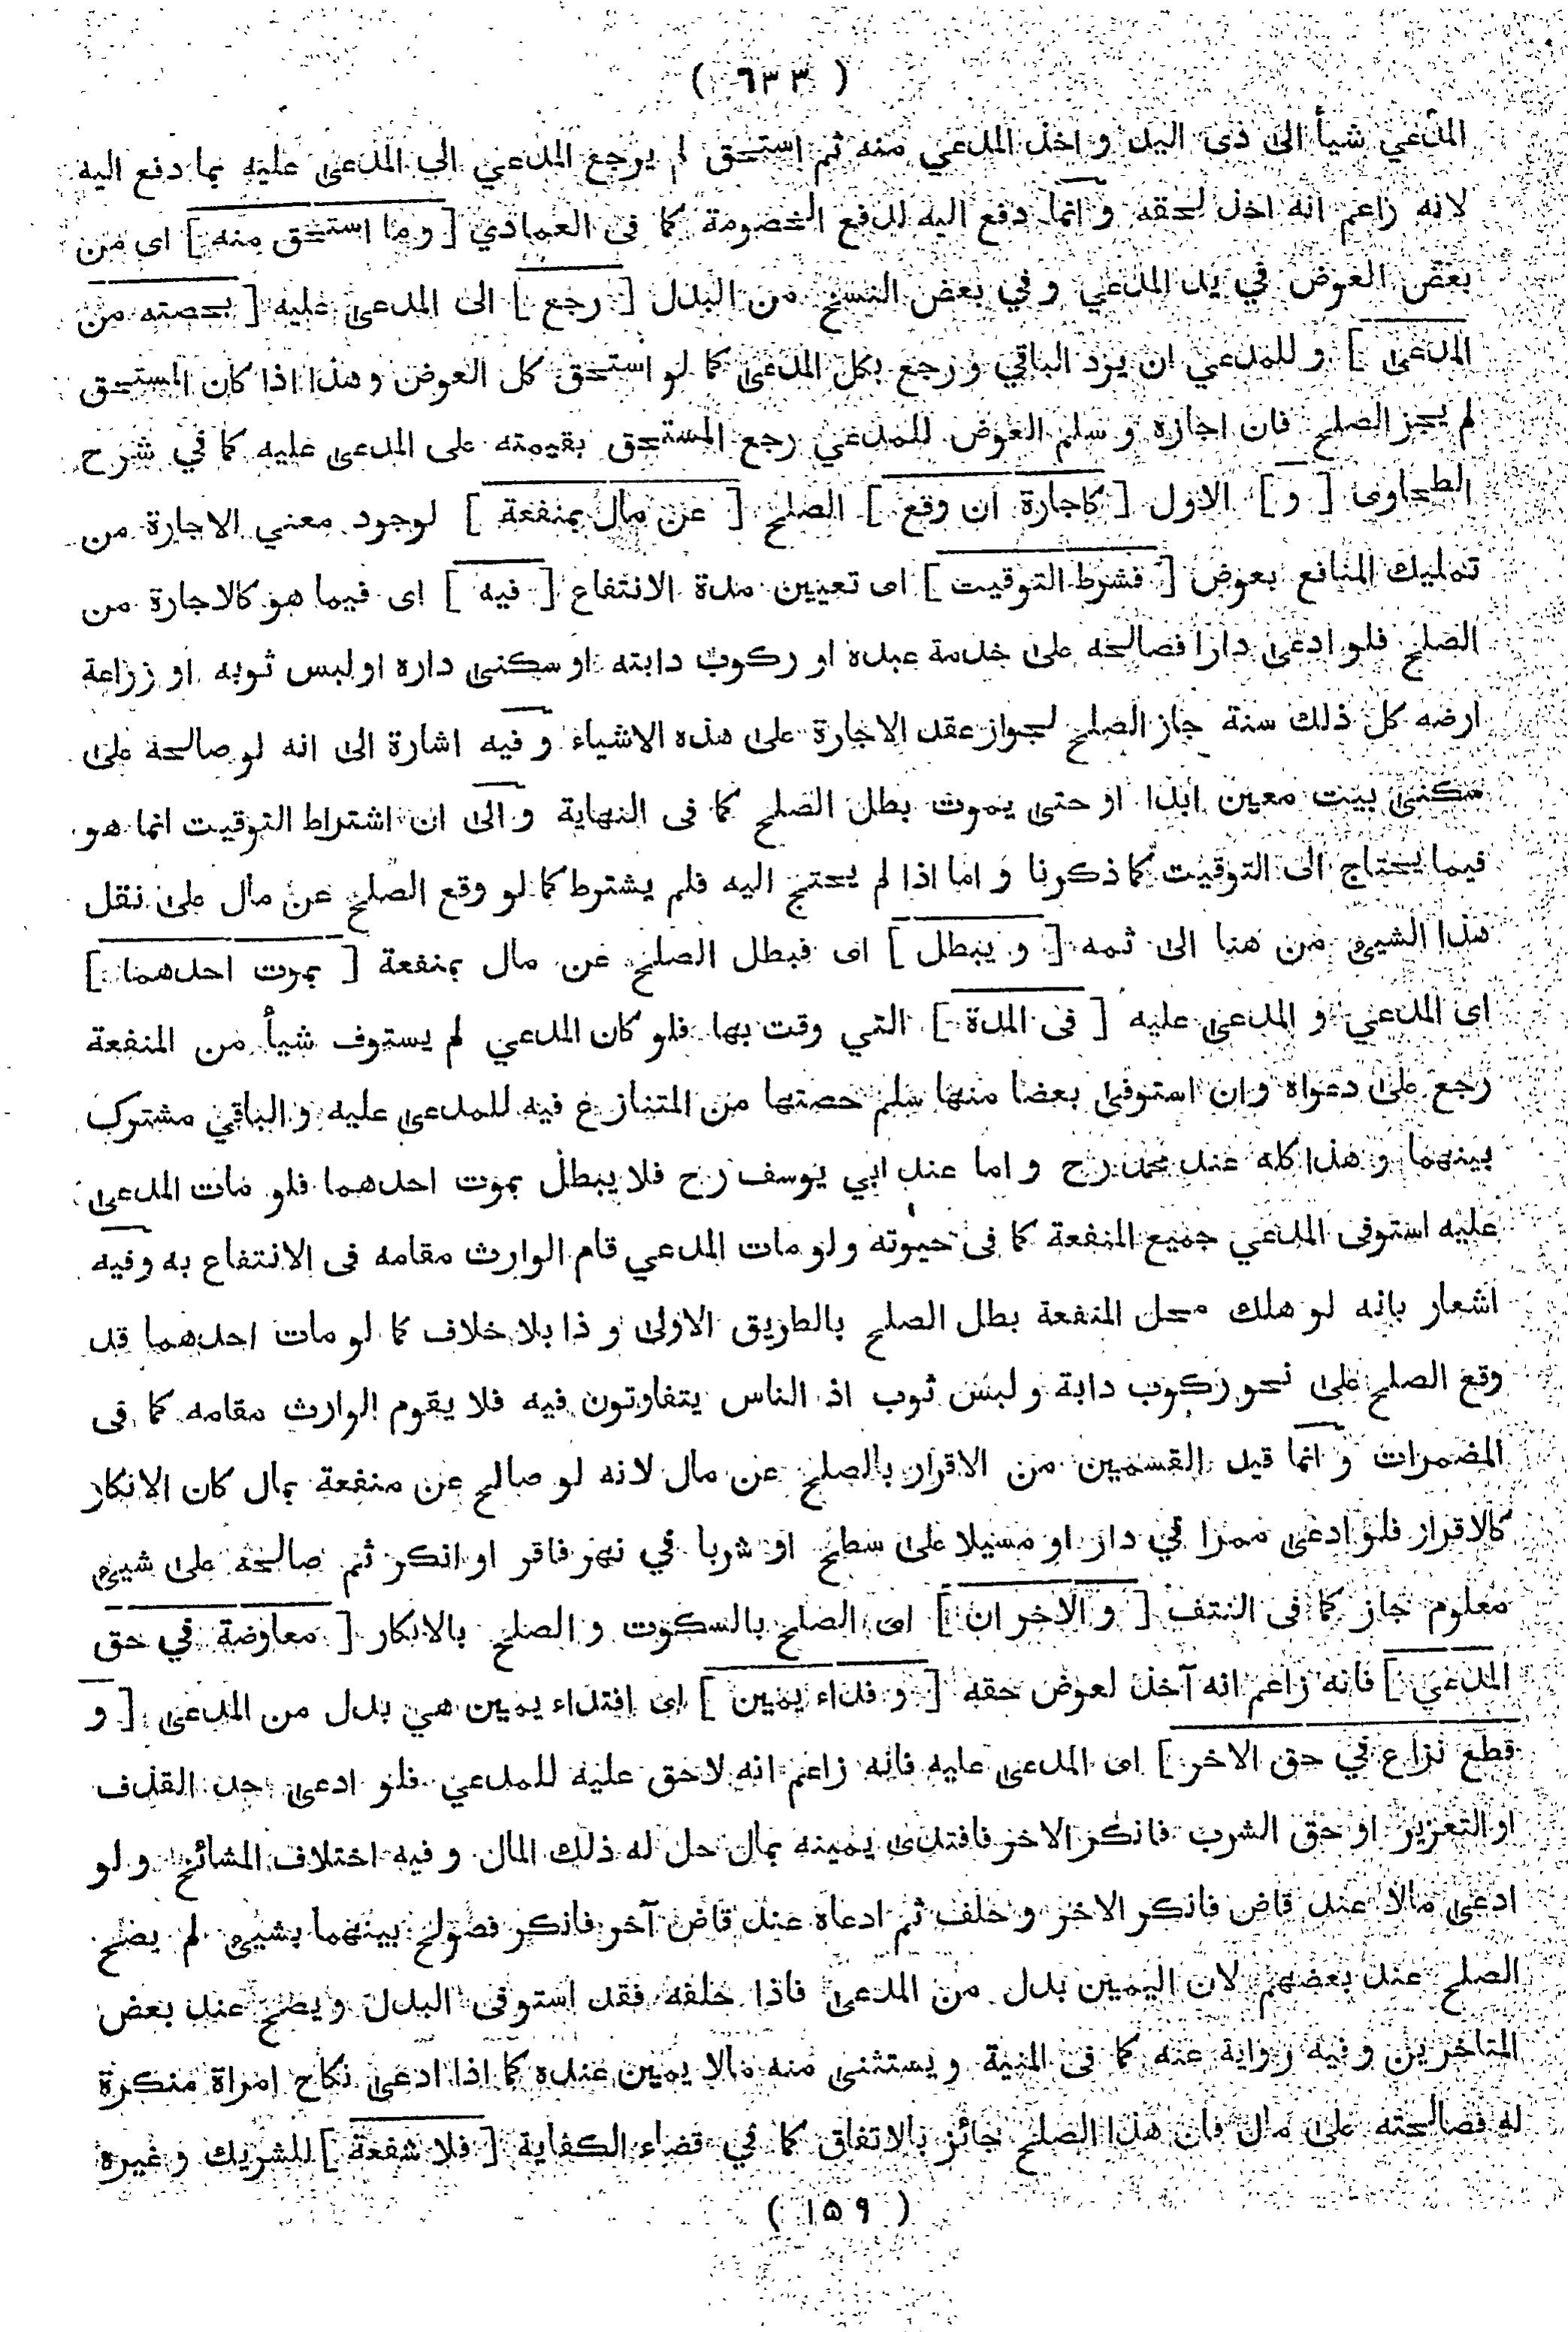 ( ٦٣٣ )
المدعي شيأ الى ذى اليد و اخذ المدعي منه ثم استحق لم يرجع المدعي الى المدعى عليه بما دفع اليه
لانه زاعم انه اخذ لحقه و انما دفع اليه لدفع الخصومة كما فى العمادي [ و ما استحق منه ] اى من
بعض العوض في يد المدعي و في بعض النسخ من البدل [ رجع ] الى المدعى عليه [ بحصته من
المدعى ] و للمدعي ان يرد الباقي و رجع بكل المدعى كما لو استحق كل العوض و هذا اذا كان المستحق
لم يجز الصلح فان اجازه و سلم العوض للمدعي رجع المستحق بقيمته على المدعى عليه كما في شرح
الطحاوى [ و ] الاول [ كاجارة ان وقع ] الصلح [ عن مال بمنفعة ] لوجود معني الاجارة من
تمليك المنافع بعوض [ فشرط التوقيت ] اى تعيين مدة الانتفاع [ فيه ] اى فيما هو كالاجارة من
الصلح فلو ادعى دارا فصالحه على خدمة عبده او ركوب دابته او سكنى داره او لبس ثوبه او زراعة
ارضه كل ذلك سنة جاز الصلح لجواز عقد الاجارة على هذه الاشياء و فيه اشارة الى انه لو صالحه على
سكنى بيت معين ابدا او حتى يموت بطل الصلح كما فى النهاية و الى ان اشتراط التوقيت انما هو
فيما يحتاج الى التوقيت كما ذكرنا و اما اذا لم يحتج اليه فلم يشترط كما لو وقع الصلح عن مال على نقل
هذا الشيئ من هنا الى ثمه [ و يبطل ] اى فبطل الصلح عن مال بمنفعة [ بموت احدهما ]
اى المدعي و المدعى عليه [ فى المدة ] التي وقت بها فلو كان المدعي لم يستوف شيأ من المنفعة
رجع على دعواه و ان استوفى بعضا منها سلم حصتها من المتنازع فيه للمدعى عليه و الباقي مشترك
بينهما و هذا كله عند محمد رح و اما عند ابي يوسف رح فلا يبطل بموت احدهما فلو مات المدعى
عليه استوفى المدعي جميع المنفعة كما فى حيوته و لو مات المدعي قام الوارث مقامه فى الانتفاع به و فيه
اشعار بانه لو هلك محل المنفعة بطل الصلح بالطريق الاولى و ذا بلا خلاف كما لو مات احدهما قد
وقع الصلح على نحو ركوب دابة و لبس ثوب اذ الناس يتفاوتون فيه فلا يقوم الوارث مقامه كما فى
المضمرات و انما قيد القسمين من الاقرار بالصلح عن مال لانه لو صالح عن منفعة بمال كان الانكار
كالاقرار فلو ادعى ممرا في دار او مسيلا على سطح او شربا في نهر فاقر او انكر ثم صالحه على شيئ
معلوم جاز كما فى النتف [ و الاخران ] اى الصلح بالسكوت و الصلح بالانكار [ معاوضة في حق
المدعي ] فانه زاعم انه آخذ لعوض حقه [ و فداء يمين ] اى افتداء يمين هي بدل من المدعى [ و
قطع نزاع في حق الاخر ] اى المدعى عليه فانه زاعم انه لاحق عليه للمدعي فلو ادعى حد القذف
او التعزير او حق الشرب فانكر الاخر فافتدى يمينه بمال حل له ذلك المال و فيه اختلاف المشائخ و لو
ادعى مالا عند قاض فانكر الاخر و حلف ثم ادعاه عند قاض آخر فانكر فصولح بينهما بشيئ لم يصح
الصلح عند بعضهم لان اليمين بدل من المدعى فاذا حلفه فقد استوفى البدل و يصح عند بعض
المتاخرين و فيه رواية عنه كما فى المنية و يستثنى منه مالا يمين عنده كما اذا ادعى نكاح امراة منكرة
له فصالحته على مال فان هذا الصلح جائز بالاتفاق كما في قضاء الكفاية [ فلا شفعة ] للشريك و غيره
( ١٥٩ )